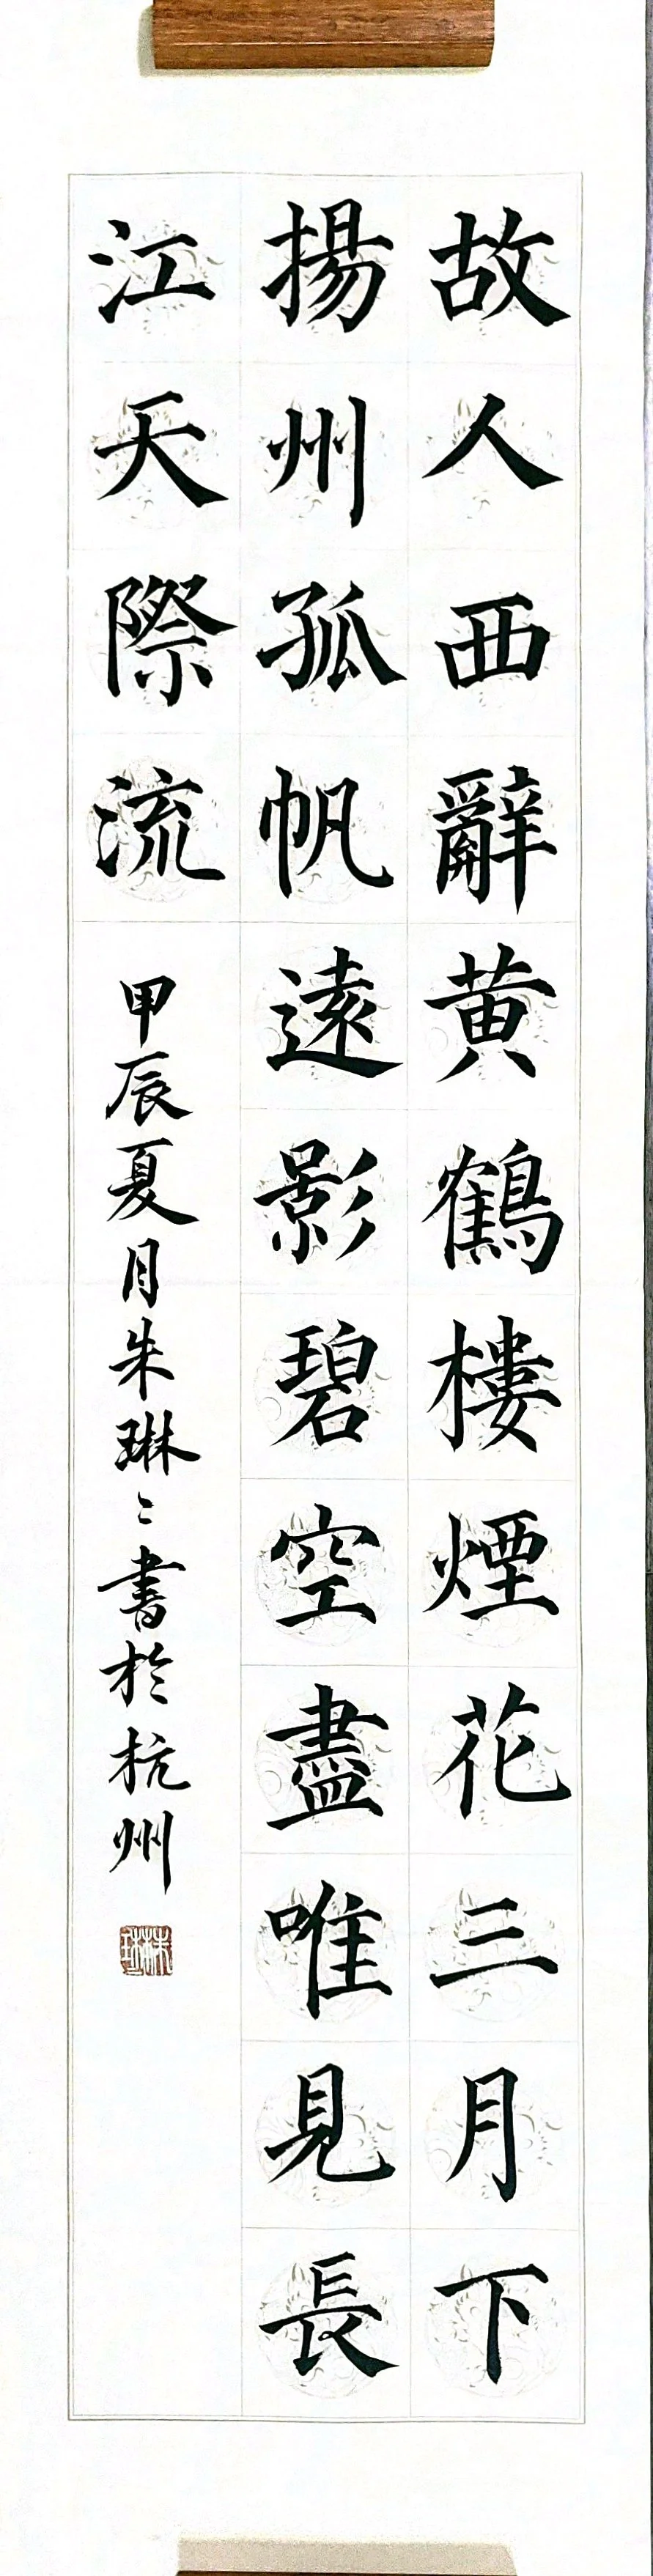 故人西辭黃鶴樓煙花三月下
揚州孤帆遠影碧空盡唯見長
江天際流
甲辰夏月朱琳〻書於杭州